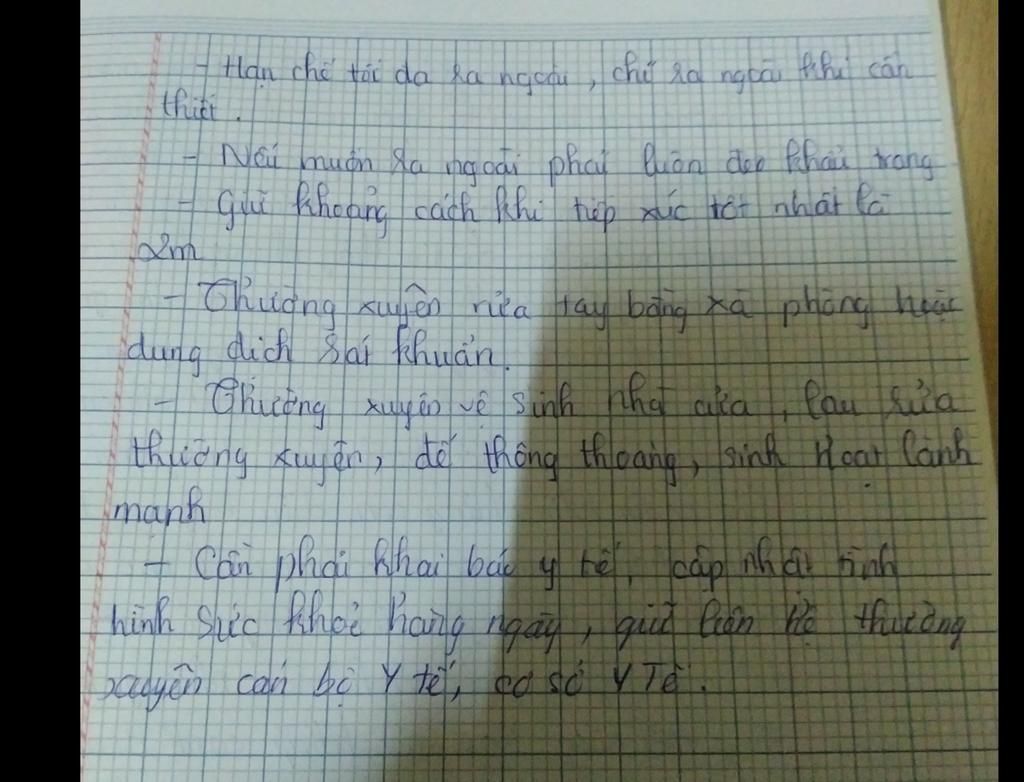 - Hạn chế tối đa ra ngoài, chỉ ra ngoài khi cần
thiết.
- Nếu muốn ra ngoài phải luôn đeo khẩu trang
- Giữ khoảng cách khi tiếp xúc tốt nhất là
2m
- Thường xuyên rửa tay bằng xà phòng hoặc
dung dịch sát khuẩn.
- Thường xuyên vệ sinh nhà cửa, lau sửa
thường xuyên, để thông thoáng, sinh hoạt lành
mạnh
- Cần phải khai báo y tế, cập nhật tình
hình sức khoẻ hàng ngày, giữ liên hệ thường
xuyên cán bộ Y tế, cơ sở Y Tế.